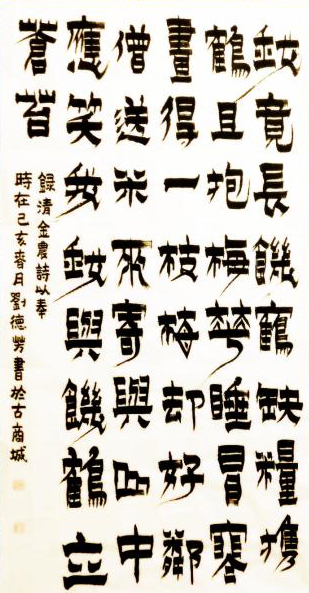 竟長饑鶴缺糧携
鶴且抱梅華睡冒寒
畫得一枝梅却好鄰
僧送米來寄與山中
應笑與饑鶴立
蒼苔
錄清金農詩以奉
時在己亥春月劉德芳書於古商城